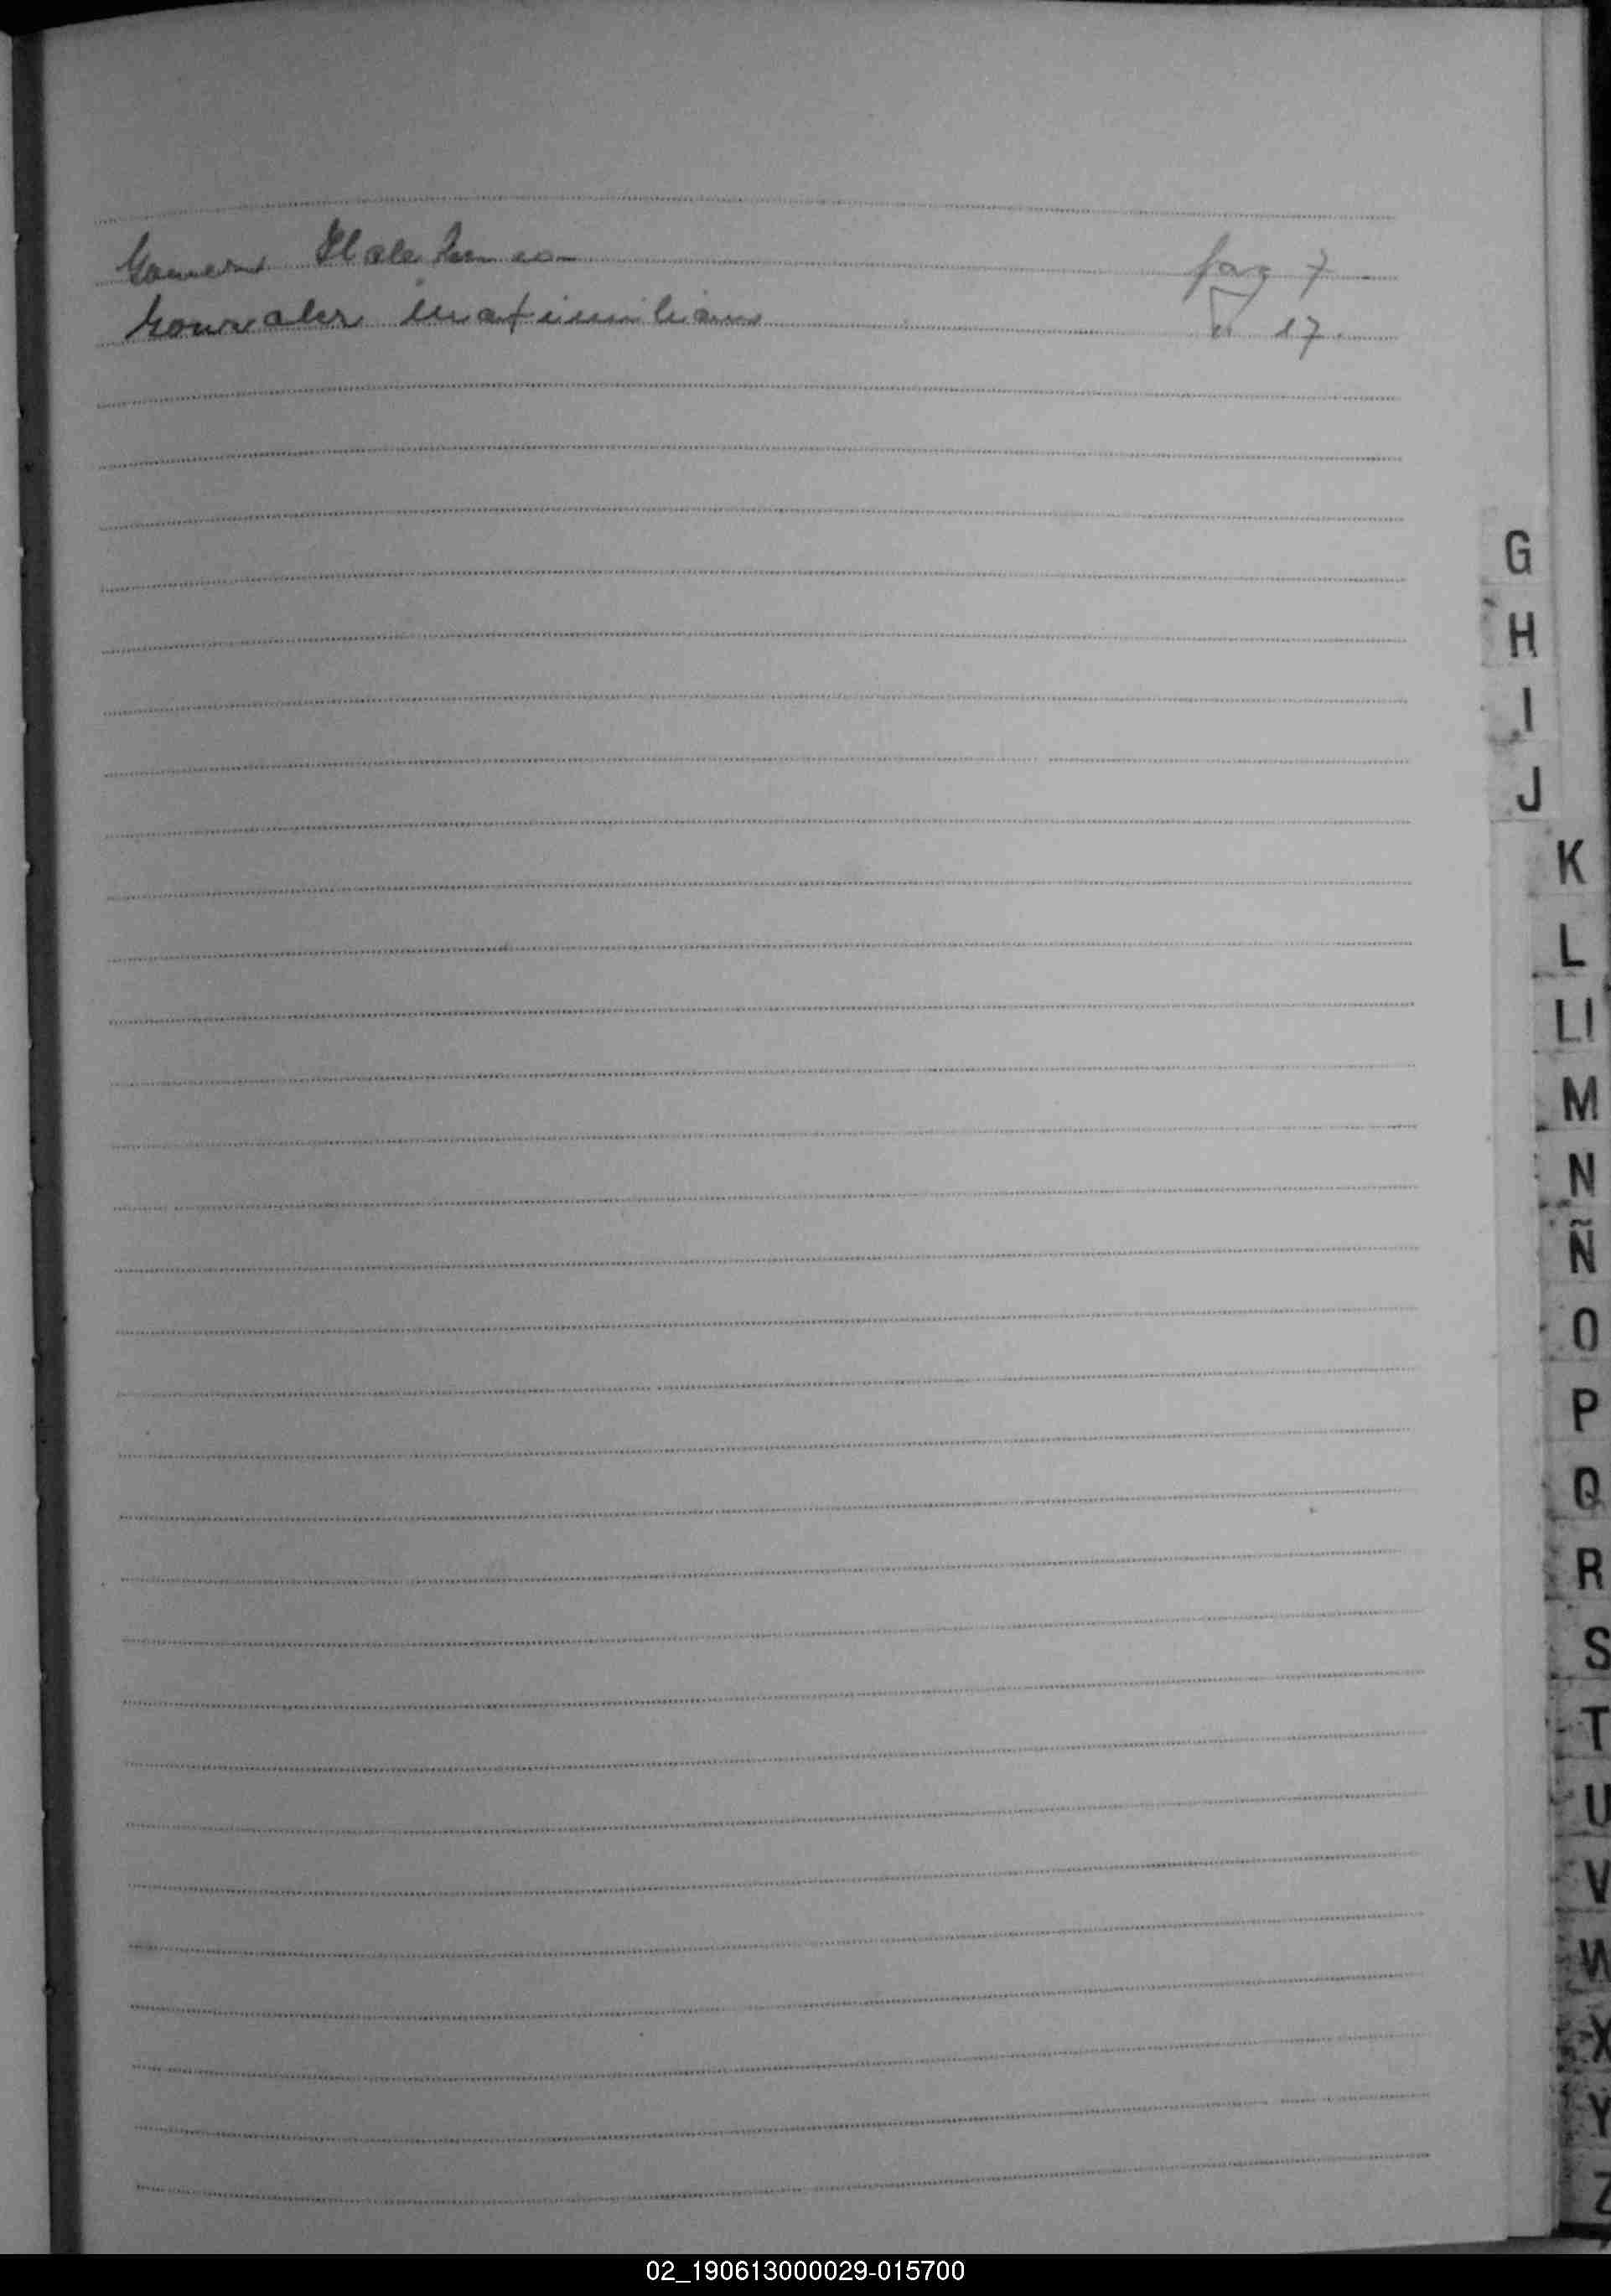 pag 7
Gonzalez Maximiliano " 17
G
H
I
J
K
L
Ll
M
N
Ñ
O
P
Q
R
S
T
U
V
W
X
Y
Z
02_190613000029-015700